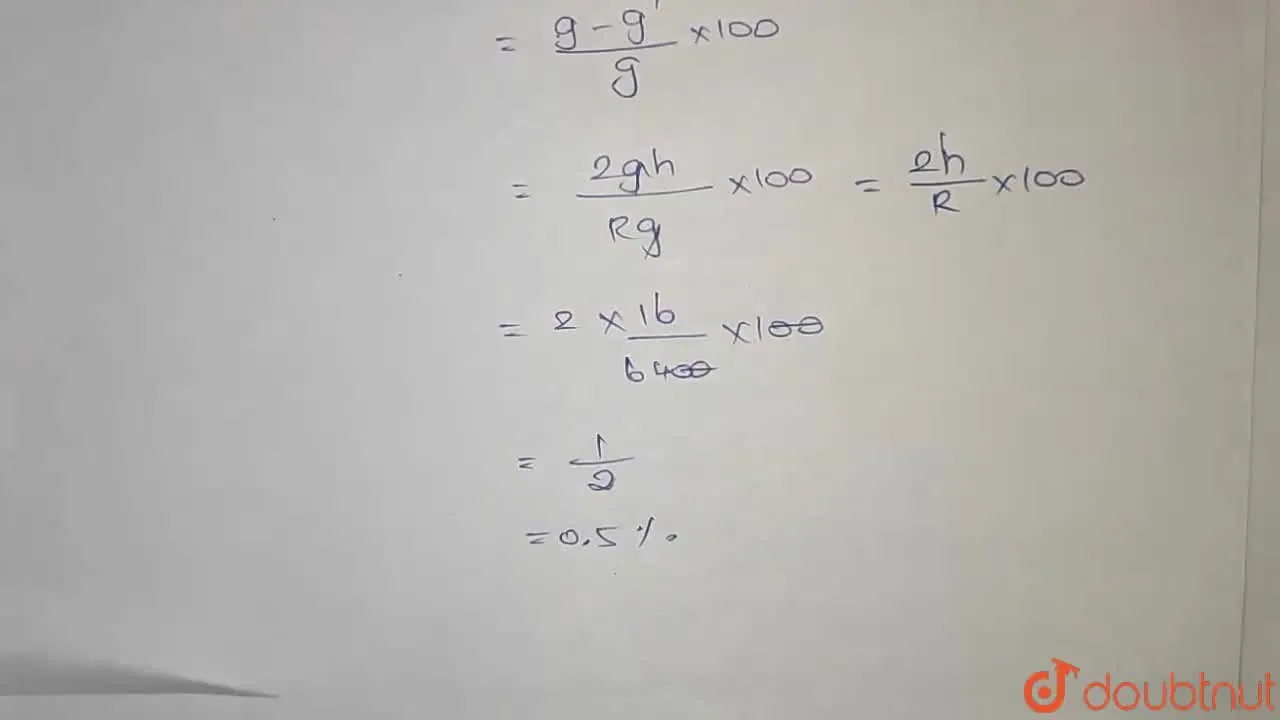 = g - g' / g ×100
= 2gh / Rg ×100 = 2h / R ×100
= 2 × 16 / 6400 ×100
= 1 / 2
= 0.5 %.
doubtnut